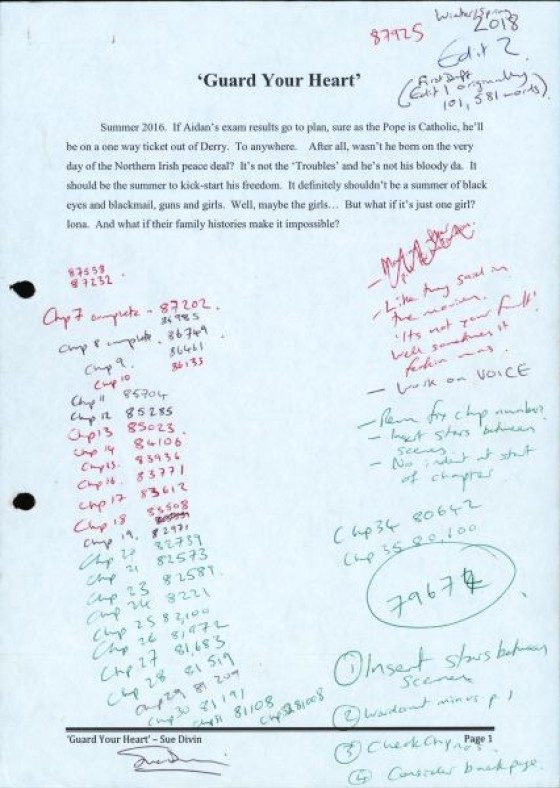 87925
Winter/Spring
2018
Edit 2
(First Draft
(Edit 1 originally
101,581 words)
‘Guard Your Heart’
Summer 2016. If Aidan’s exam results go to plan, sure as the Pope is Catholic, he’ll
be on a one way ticket out of Derry. To anywhere. After all, wasn’t he born on the very
day of the Northern Irish peace deal? It’s not the ‘Troubles’ and he’s not his bloody da. It
should be the summer to kick-start his freedom. It definitely shouldn’t be a summer of black
eyes and blackmail, guns and girls. Well, maybe the girls… But what if it’s just one girl?
Iona. And what if their family histories make it impossible?
87538
87232
Chp 7 complete - 87202
86985
Chp 8 complete. 86749
Chp 9. 86461
Chp 10 86133
Chp 11 85704
Chp 12 85285
Chp 13 85023
Chp 14 84106
Chp 15. 83936
Chp 16. 83771
Chp 17 83612
Chp 18 83508
Chp 19. 82971
Chp 20 82739
Chp 21 82573
Chp 23 82589
Chp 24 8221
Chp 25 82,100
Chp 26 81,972
Chp 27 81,683
Chp 28 81 519
Chp 29 81 209
Chp 30 81 191
81108
81008
- Like they said in
the movies.
'It's not your fault'
Well sometimes it
feckin was.
- Work on VOICE
- Insert stars between
scenes
- No indent at start
of chapter
Chp 34 80642
Chp 35 80,100
7967
① Insert stars between
scenes
② Wordcount minus p.1
③ Check Chp nos.
④ Consider back page.
‘Guard Your Heart’ – Sue Divin
Page 1
Sue Divin